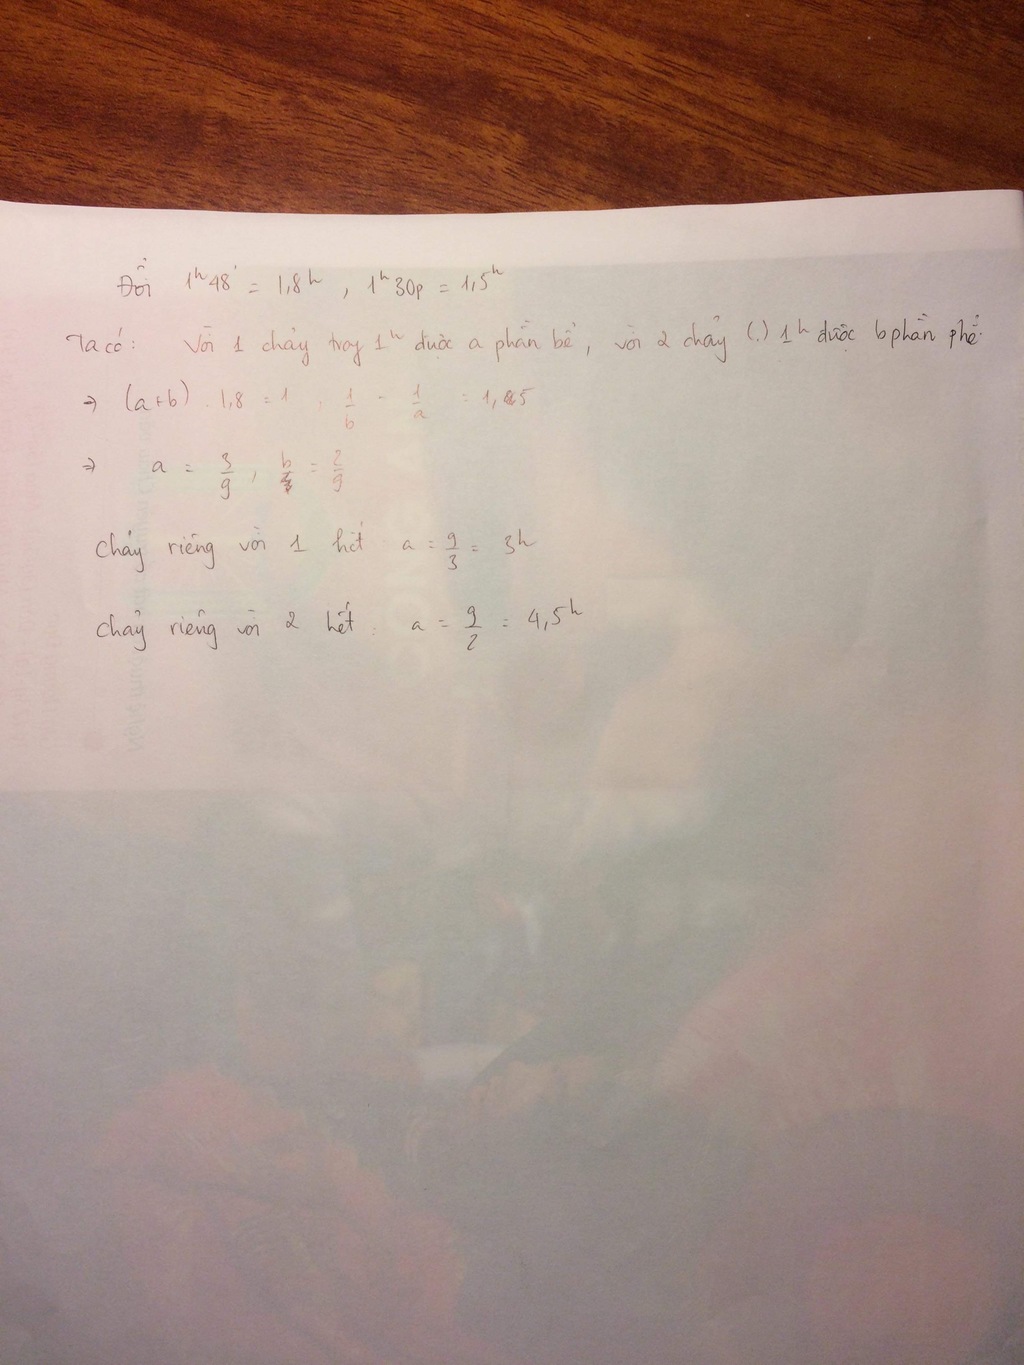 Đổi 1h48' = 1,8h , 1h30p = 1,5h
Ta có: Vòi 1 chảy trog 1h được a phần bể, vòi 2 chảy (.) 1h được b phần phể.
⇒ (a+b) . 1,8 = 1 , 1/b - 1/a = 1,5
⇒ a = 3/9 , b = 2/9
Chảy riêng vòi 1 hết a = 9/3 = 3h
Chảy riêng vòi 2 hết : a = 9/2 = 4,5h